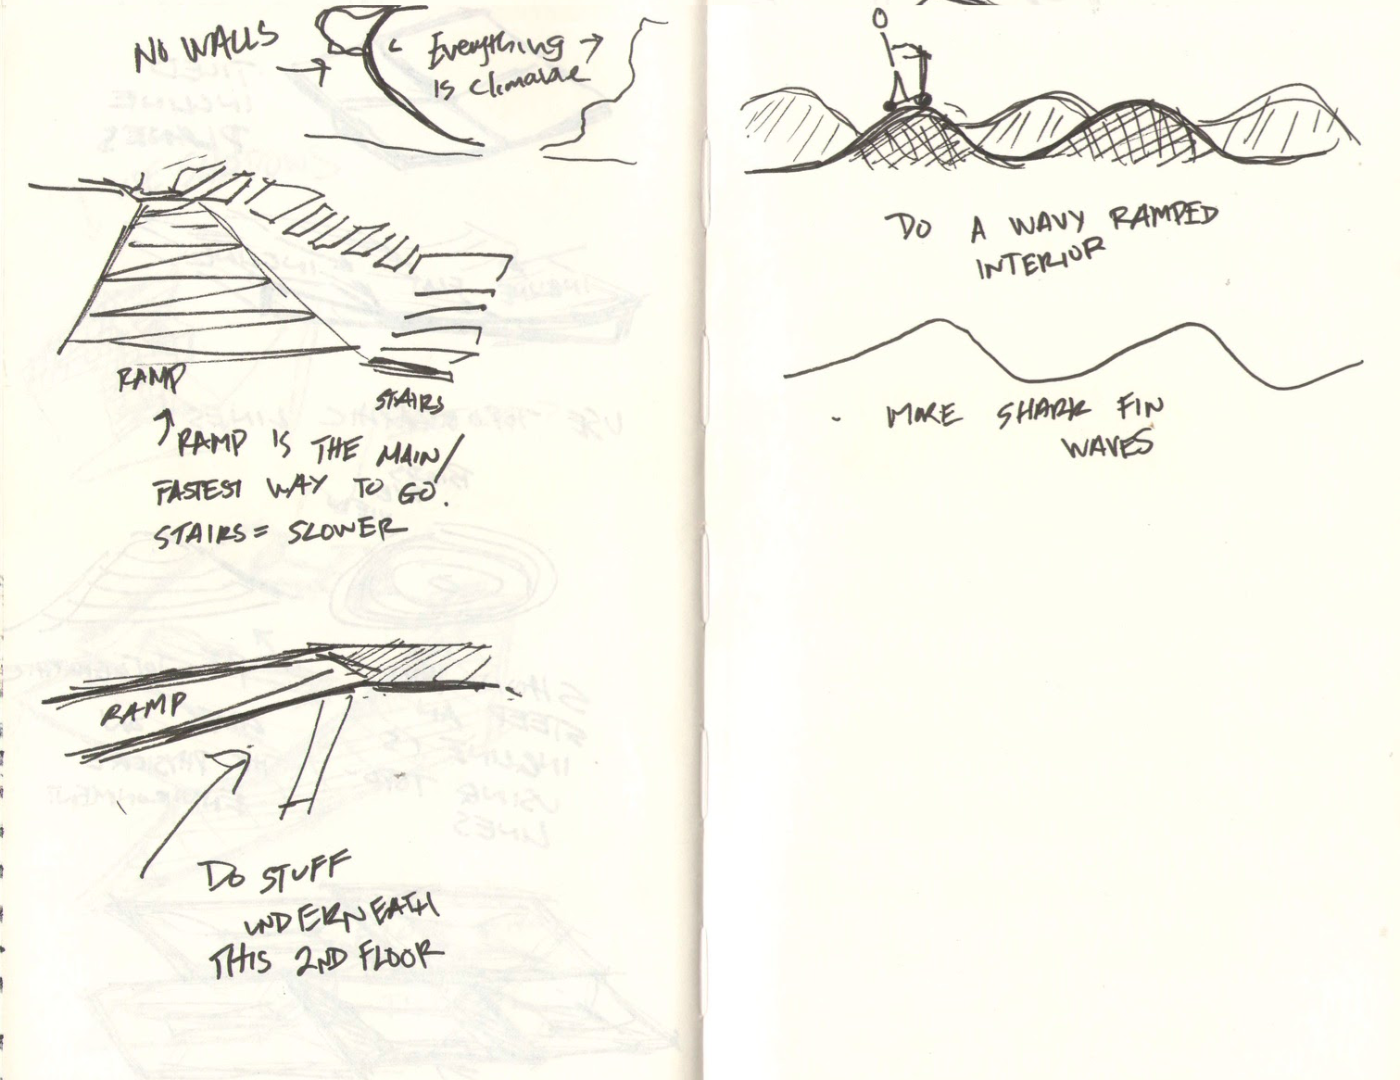 NO WALLS
Everything
is climable
RAMP
STAIRS
RAMP IS THE MAIN/
FASTEST WAY TO GO.
STAIRS = SLOWER
RAMP
DO STUFF
UNDERNEATH
THIS 2ND FLOOR
DO A WAVY RAMPED
INTERIOR
- MORE SHARK FIN
WAVES